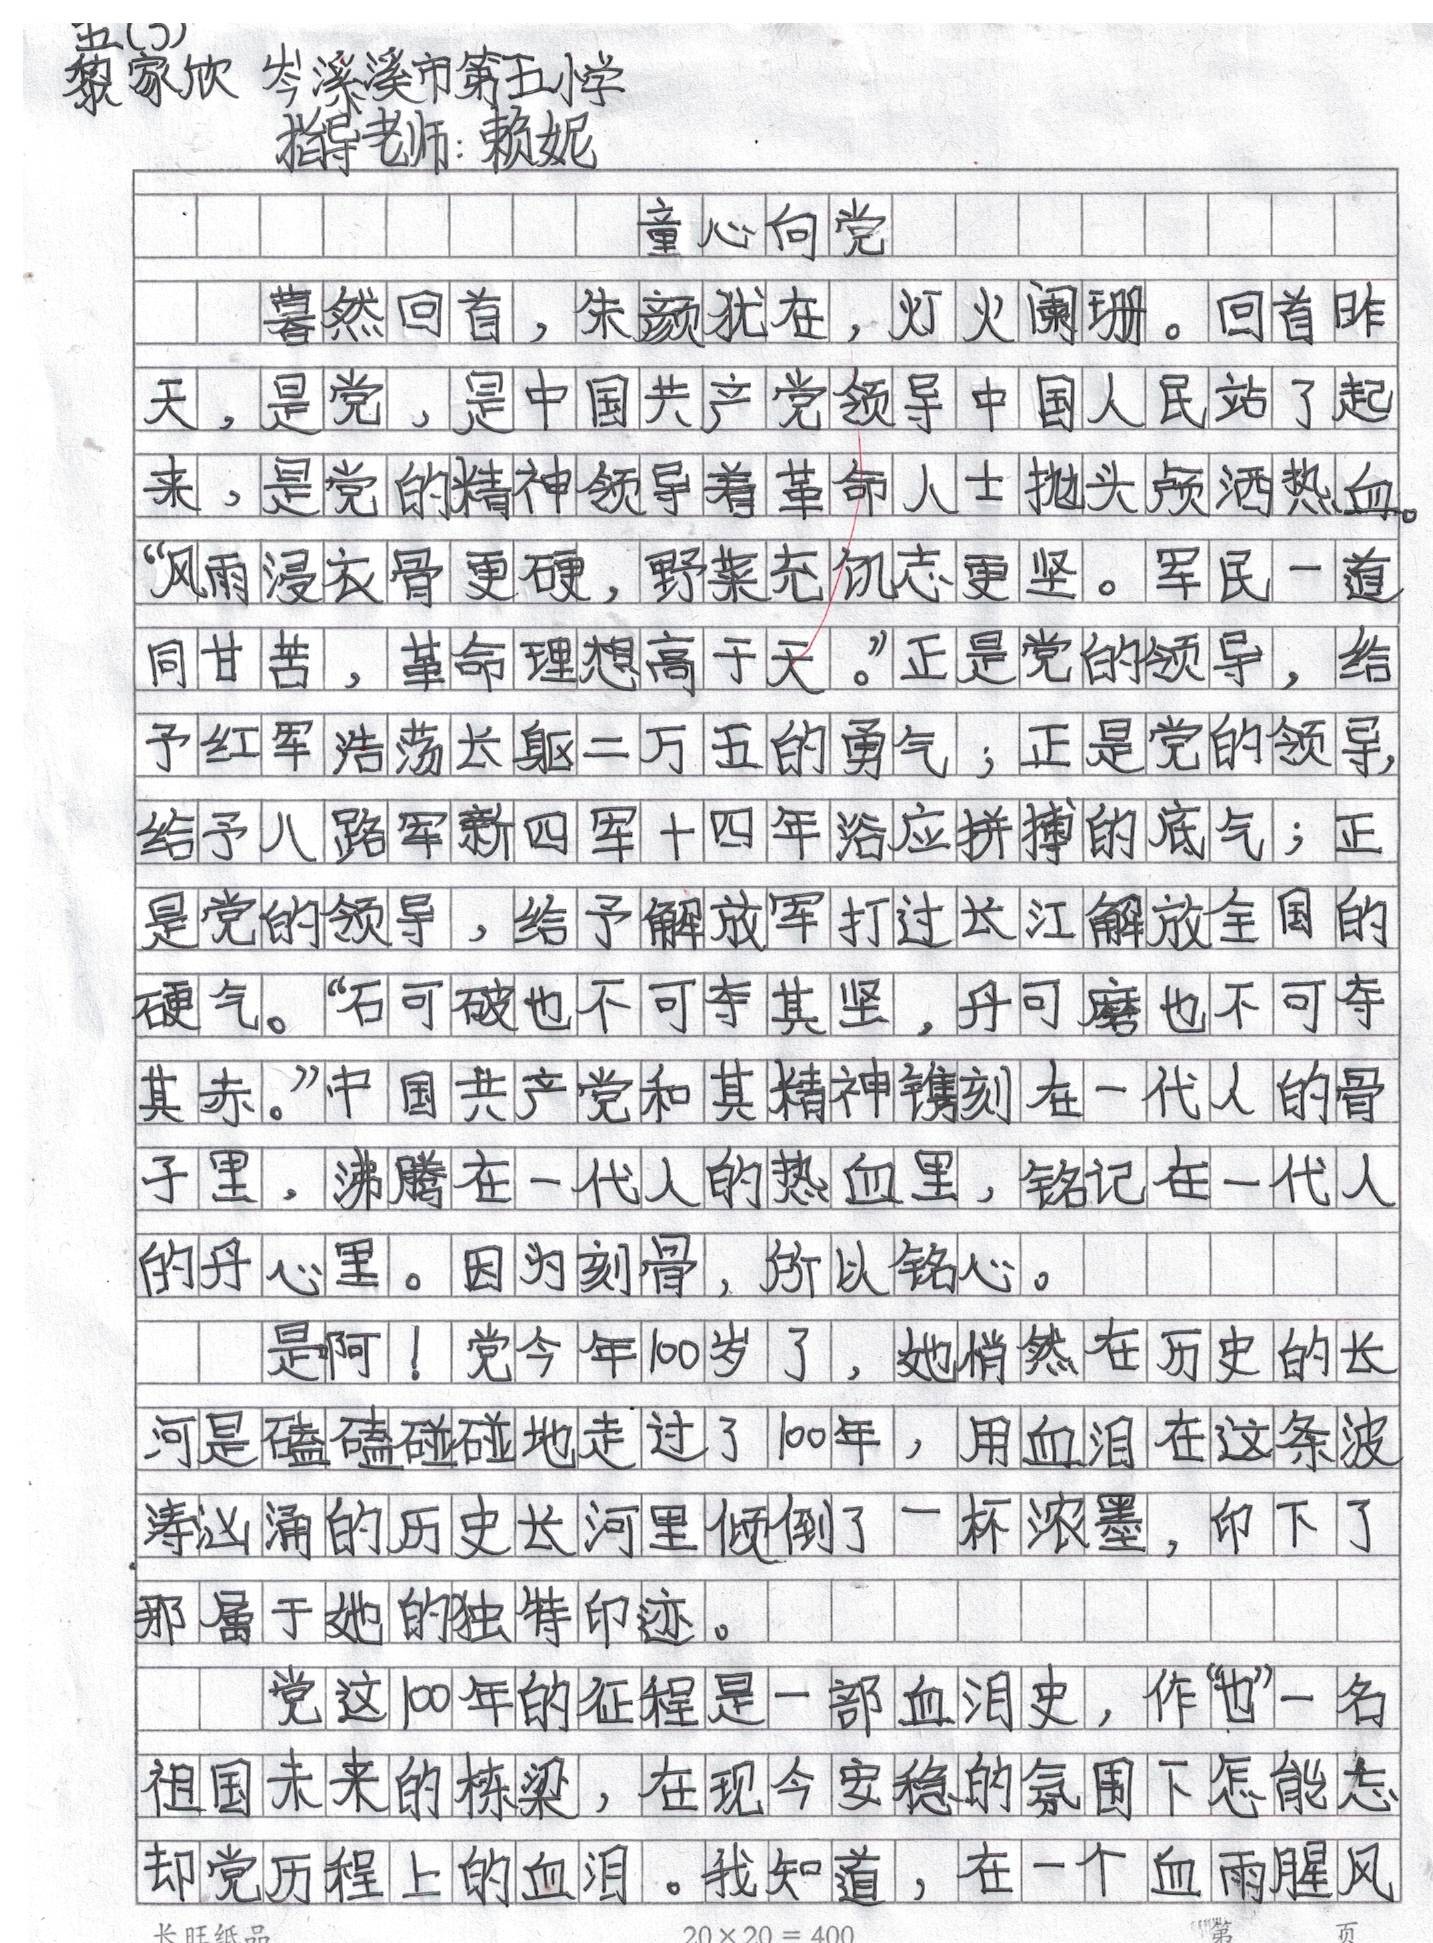 五(5)
黎家欣 岑溪溪市第五小学
指导老师：赖妮
童心向党
暮然回首，朱颜犹在，灯火阑珊。回首昨
天，是党，是中国共产党领导中国人民站了起
来，是党的精神领导着革命人士抛头颅洒热血。
“风雨浸衣骨更硬，野菜充饥志更坚。军民一道
同甘苦，革命理想高于天。”正是党的领导，给
予红军浩荡长躯二万五的勇气；正是党的领导，
给予八路军新四军十四年浴应拼搏的底气；正
是党的领导，给予解放军打过长江解放全国的
硬气。“石可破也不可夺其坚，丹可磨也不可夺
其赤。”中国共产党和其精神镌刻在一代人的骨
子里，沸腾在一代人的热血里，铭记在一代人
的丹心里。因为刻骨，所以铭心。
是啊！党今年100岁了，她悄然在历史的长
河是磕磕碰碰地走过了100年，用血泪在这条波
涛汹涌的历史长河里倾倒了一杯浓墨，印下了
那属于她的独特印迹。
党这100年的征程是一部血泪史，作“也”一名
祖国未来的栋梁，在现今安稳的氛围下怎能忘
却党历程上的血泪。我知道，在一个血雨腥风
长旺纸品 20×20=400 第 页